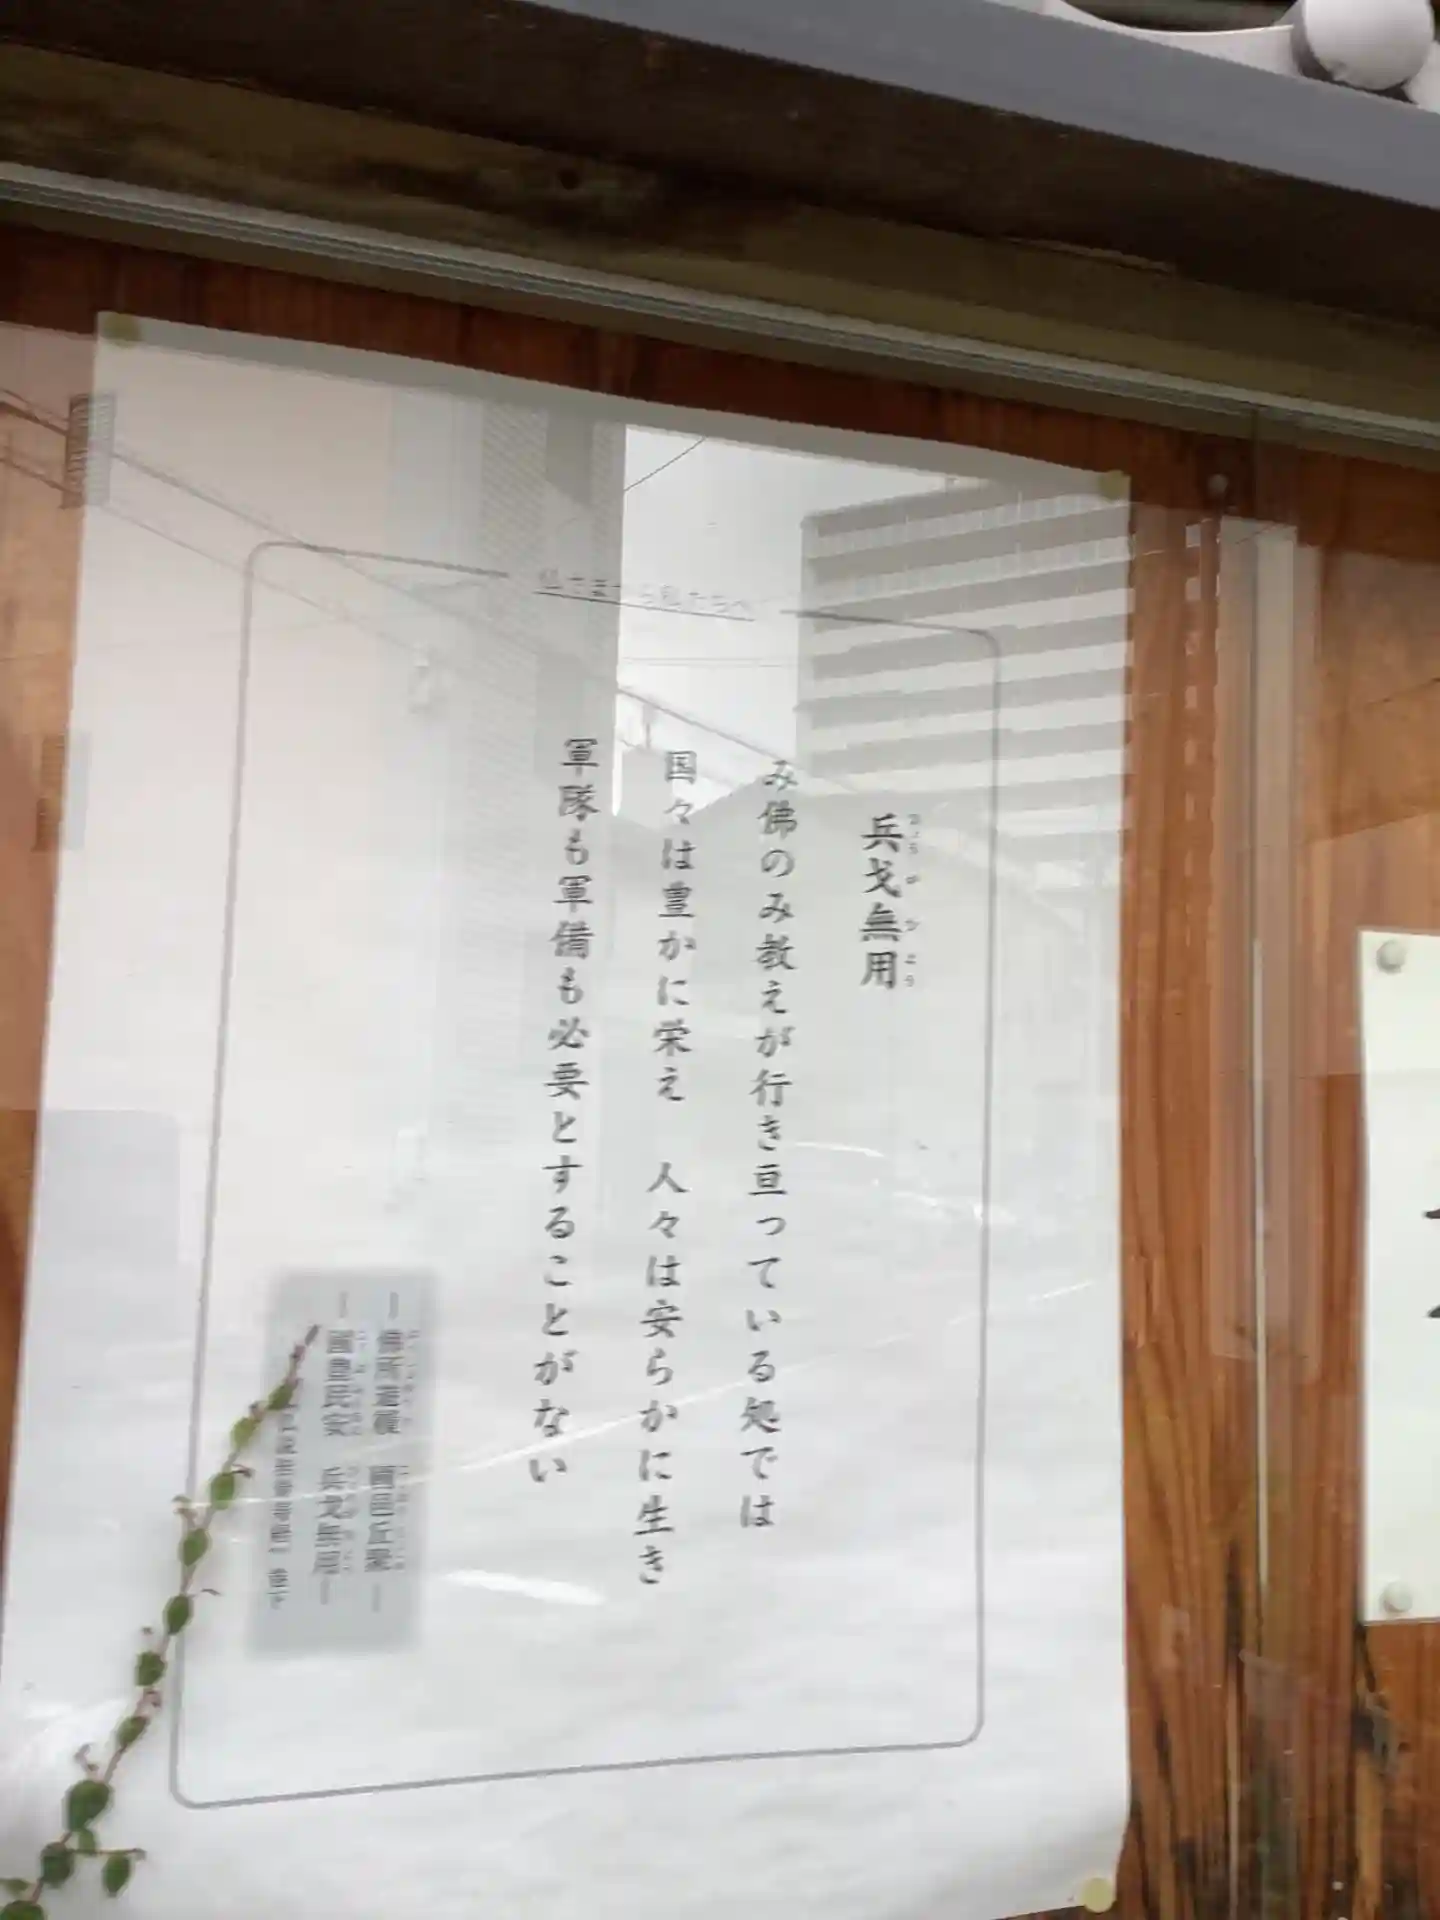 仏さまから私たちへ
兵戈無用
み佛のみ教えが行き亘っている処では
国々は豊かに栄え 人々は安らかに生き
軍隊も軍備も必要とすることがない
國豊民安 兵戈無用